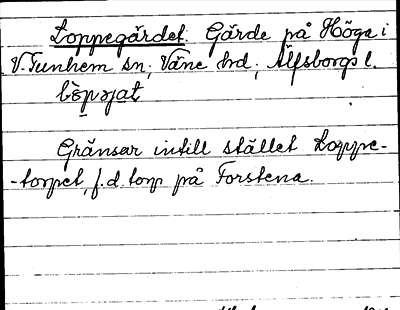 Loppegärdet. Gärde på Höga i
V. Tunhem sn; Väne hd; Älfsborgs l.
Gränsar intill stället Loppe-
-torpet, f.d. torp på Forstena.